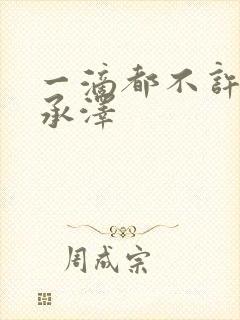 一滴都不許
承澤
周成宗